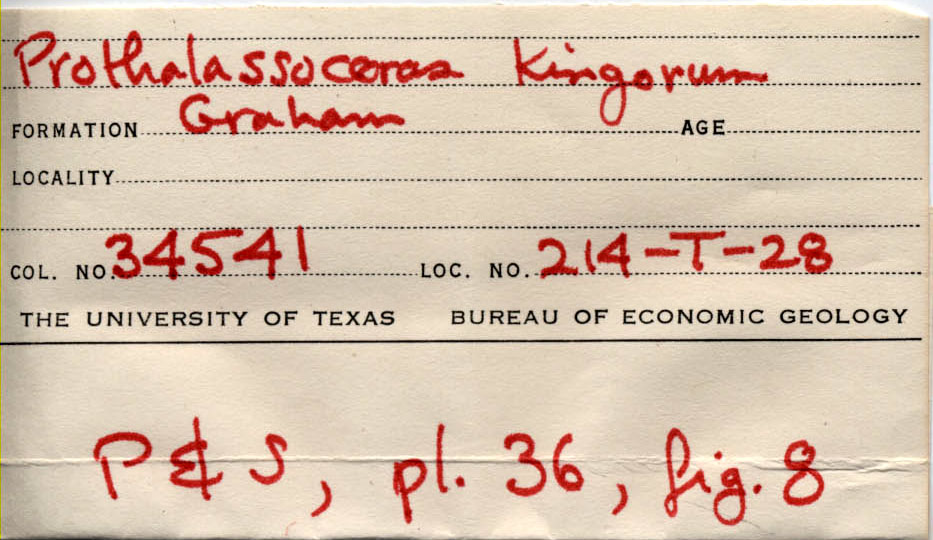 Prothalassoceras Kingorum
FORMATION Graham AGE
LOCALITY
COL. NO. 34541 LOC. NO. 214-T-28
THE UNIVERSITY OF TEXAS BUREAU OF ECONOMIC GEOLOGY
P & S, pl. 36, fig. 8